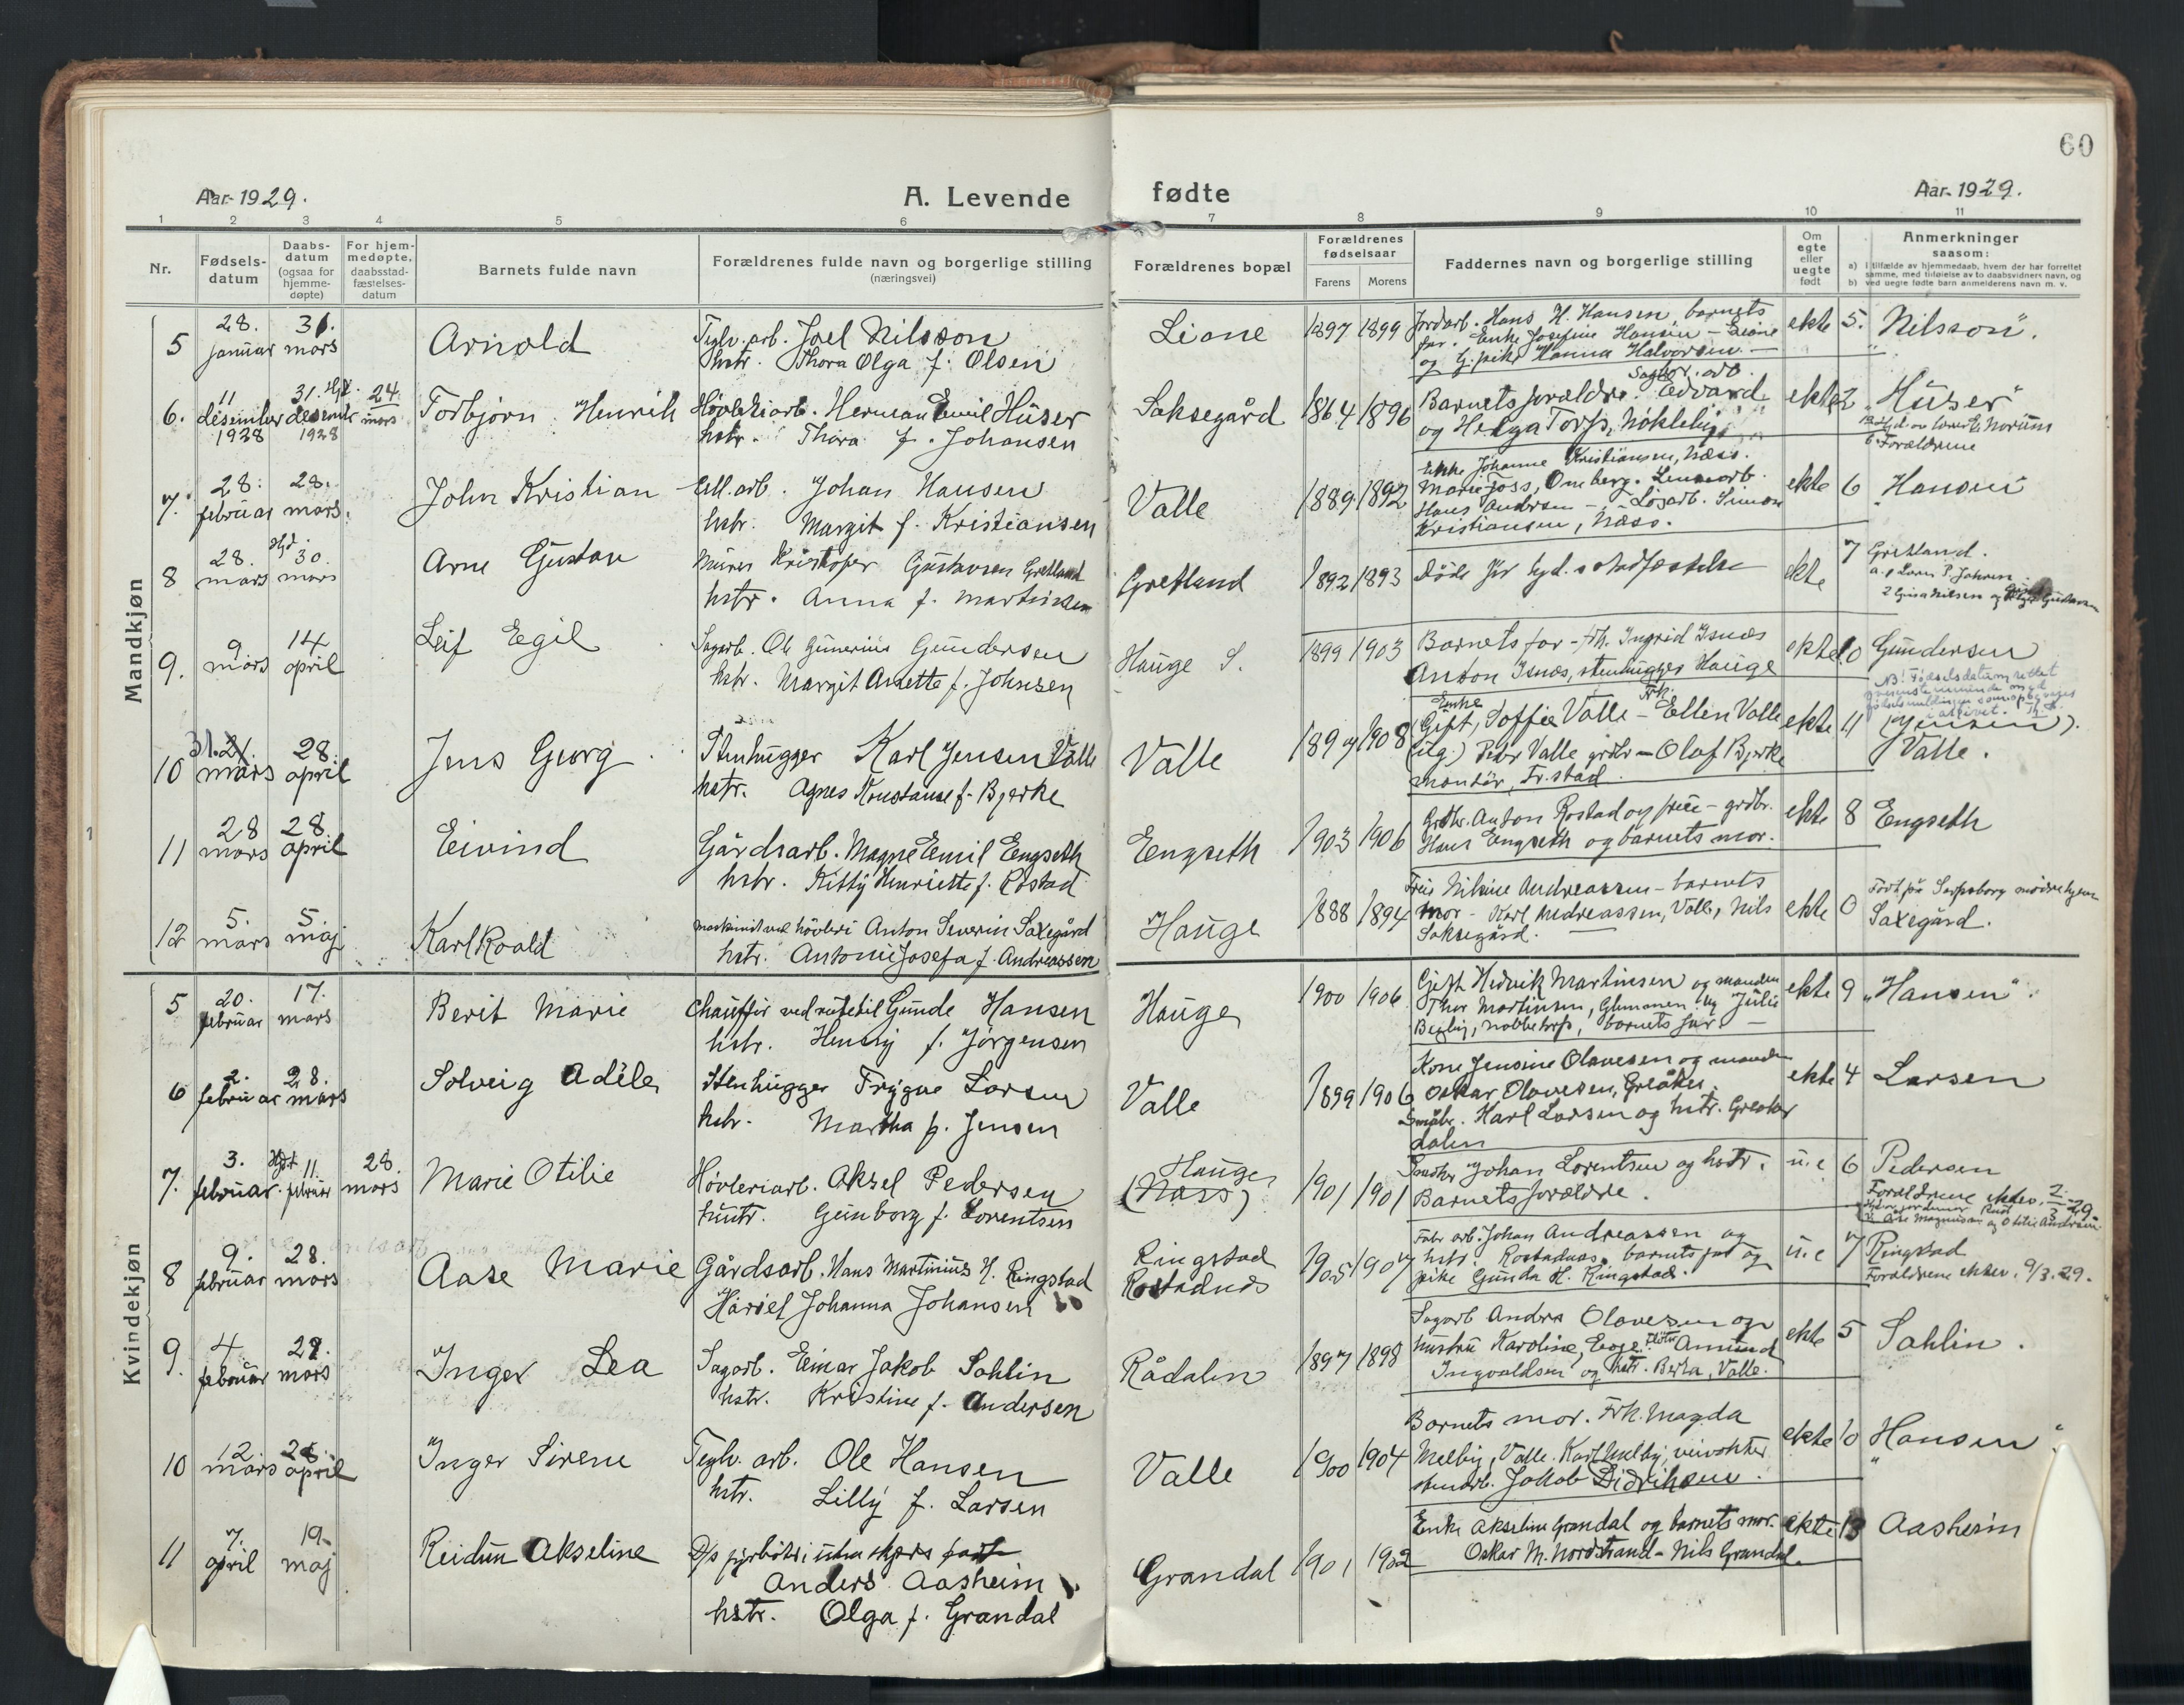 60
Aar 1929.
A. Levende fødte
Aar 1929.
1 2 3 4 5 6 7 8 9 10 11
Nr.
Fødselsdatum
Daabsdatum (ogsaa for hjemmedøpte)
For hjemmedøpte, daabsstadfæstelsesdatum
Barnets fulde navn
Forældrenes fulde navn og borgerlige stilling (næringsvei)
Forældrenes bopæl
Forældrenes fødselsaar
Farens Morens
Faddernes navn og borgerlige stilling
Om egte eller uegte født
Anmerkninger saasom:
a) i tilfælde av hjemmedaab, hvem der har forrettet samme, med tilføielse av to daabsvidners navn, og
b) ved uegte fødte barn anmelderens navn m. v.
Mandkjøn
5 28. januar 31. mars Arnold
Teglv. arb. Joel Nilsson
hstr. Thora Olga f. Olsen
Lione 1897 1899
Jordarb. Hans H. Hansen, barnets
far. Enke Josefine Hansen - Lione
og G. pike Hanna Halvorsen
ekte 5. "Nilsson".
6. 11 desember 1928 31. desember 1928 24 mars Torbjørn Henrik
Høvleriarb. Herman Emil Huser
hstr. Thora f. Johansen
Saksegård 1864 1896
Barnets forældre. Sagbr. arb. Edvard
og Helga Torp, Nøkleby
ekte 2 "Huser"
Forældrene
7. 28. februar 28. mars John Kristian
Ell. arb. Johan Hansen
hstr. Margit f. Kristiansen
Valle 1889 1892
Enke Johanne Kristiansen, Næss.
Marie Foss, Omberg.
Hans Andersen - Løsarb. Simon
Kristiansen, Næss.
ekte 6 Hansen
8 28. mars Hjd. 30. mars Arne Gustav
Murer Kristofer Gustavsen Gretland
hstr. Anna f. Martinsen
Gretland 1892 1893
Døde før hjd. stadfæstelse
ekte 7 Gretland.
9. 9 mars 14 april Leif Egil
Sagarb. Ole Gunerius Gundersen
hstr. Margit Anette f. Johnsen
Hauge S. 1899 1903
Barnets far - frk. Ingrid Isnæs
Anton Isnæs, stenhugger Hauge
ekte 10 Gundersen
10 31. mars 28. april Jens Georg
Stenhugger Karl Jensen Valle
hstr. Agnes Konstanse f. Bjerke
Valle 1897 1908
Enke
Gift, Soffie Valle - Frk. Ellen Valle
(ug.) Peder Valle grdbr - Olaf Bjerke
montør, Fr.stad.
ekte 11 (Jensen).
Valle.
11 28 mars 28. april Eivind
Gårdsarb. Magne Emil Engseth
hstr. Kitty Henriette f. Rostad
Engseth 1903 1906
Grdbr. Anton Rostad og frue - grdbr.
Hans Engseth og barnets mor.
ekte 8 Engseth
12 5. mars 5. maj Karl Roald
Maskinist ved høvleri Anton Severin Saxegård
hstr. Antonie Josefa f. Andreassen
Hauge 1888 1894
Frue Nilsine Andreassen - barnets
mor - Karl Andreassen, Valle, Nils
Saksegård.
ekte 0 Født på Sarpsborg mødrehjem
Saxegård.
Kvindekjøn
5 20. februar 17. mars Berit Marie
Chauffør ved rutebil Gunde Hansen
hstr. Henny f. Jørgensen
Hauge 1900 1906
Gift Hedvik Martinsen og manden
Thor Martinsen, Glemmen. Ug. Julie
Begby, Nabbetorp, barnets far.
ekte 9 "Hansen".
6 2. februar 28. mars Solveig Adele
Stenhugger Trygve Larsen
hstr. Martha f. Jensen
Valle 1899 1906
Kone Jensine Olavesen og manden
Oskar Olavesen, Greåker.
Småbr. Karl Larsen og hstr. Greåker
dalen
ekte 4 Larsen
7. 3. februar Hjd. 11. februar 28. mars Marie Otilie
Høvleriarb. Aksel Pedersen
hustr. Gunborg f. Lorentsen
Hauge
(Næss) 1901 1901
Småbr Johan Lorentsen og hstr.
Barnets forældre.
u.e 6 Pedersen
Forældrene ektev. 2/3-29.
8 9. februar 28. mars Aase Marie
Gårdsarb. Hans Martinius H. Ringstad
Harriet Johanna Johansen
Ringstad
Rostadnes 1905 1907
Fabr. arb. Johan Andreassen og
hstr. Rostadnes, barnets far og
pike Gunda H. Ringstad.
u.e 7 Ringstad
Forældrene ektev. 9/3.29.
9. 4 februar 29. mars Inger Lea
Sagarb. Einar Jakob Sahlin
hstr. Kristine f. Andersen
Rådalen 1897 1898
Sagarb Anders Olavesen og
hustru Karoline, Evje. Amund
Ingvaldsen og hstr. Berta, Valle.
ekte 5 Sahlin.
10 12. mars 28. april Inger Sirene
Teglv. arb. Ole Hansen
hstr. Lilly f. Larsen
Valle 1900 1904
Barnets mor. Frk. Magda
Melby, Valle. Karl Melby, veivokter
stenarb. Jakob Didriksen.
ekte 10 Hansen
11 7. april 19. maj Reidun Akseline
D/s fyrbøter i utenskjærs fart
Anders Aasheim
hstr. Olga f. Grandal
Grandal 1901 1902
Enke Akseline Grandal og barnets mor.
Oskar M. Nordstrand - Nils Grandal.
ekte 13 Aasheim